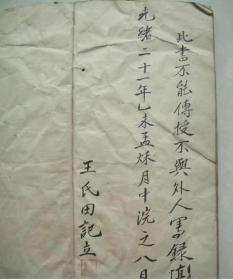 此書不能傳授不與外人筆錄
光緒二十一年乙未孟秌月中浣之八日
王氏田記立